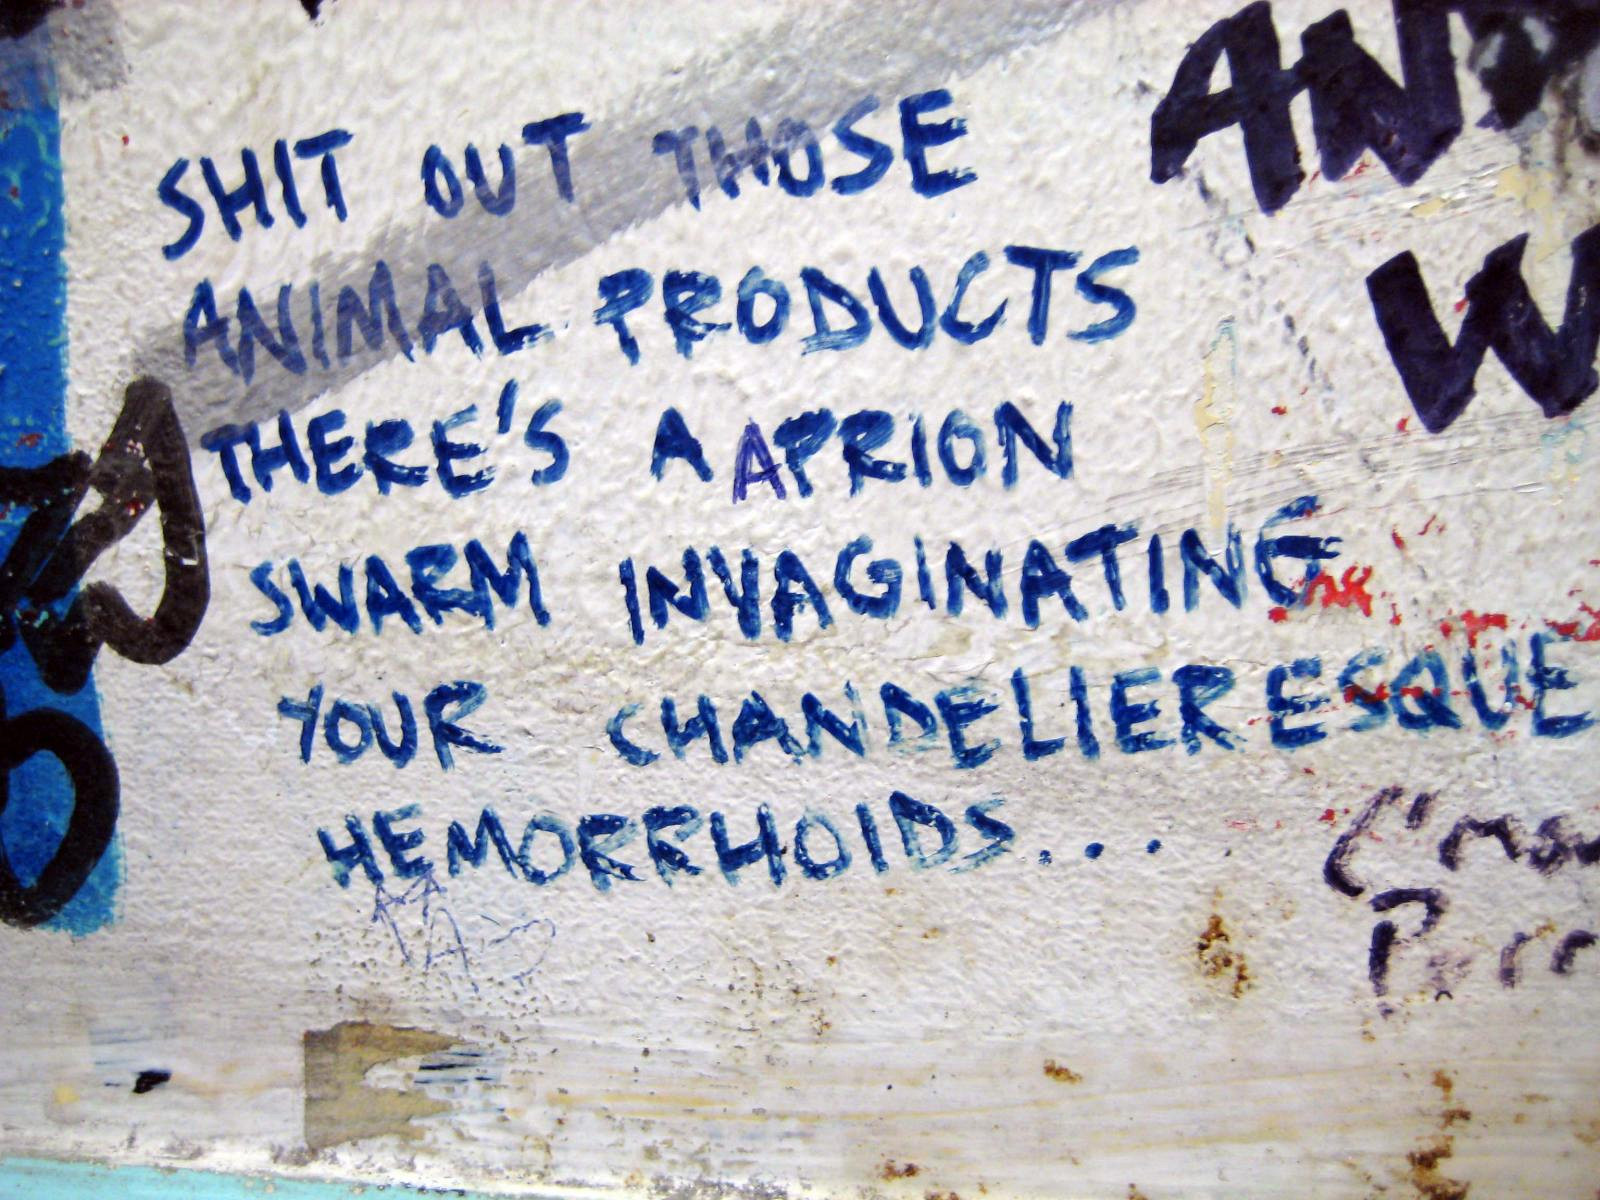 SHIT OUT THOSE
ANIMAL PRODUCTS
THERE'S A APRION
SWARM INVAGINATING
YOUR CHANDELIERESQUE
HEMORRHOIDS...
AN
W